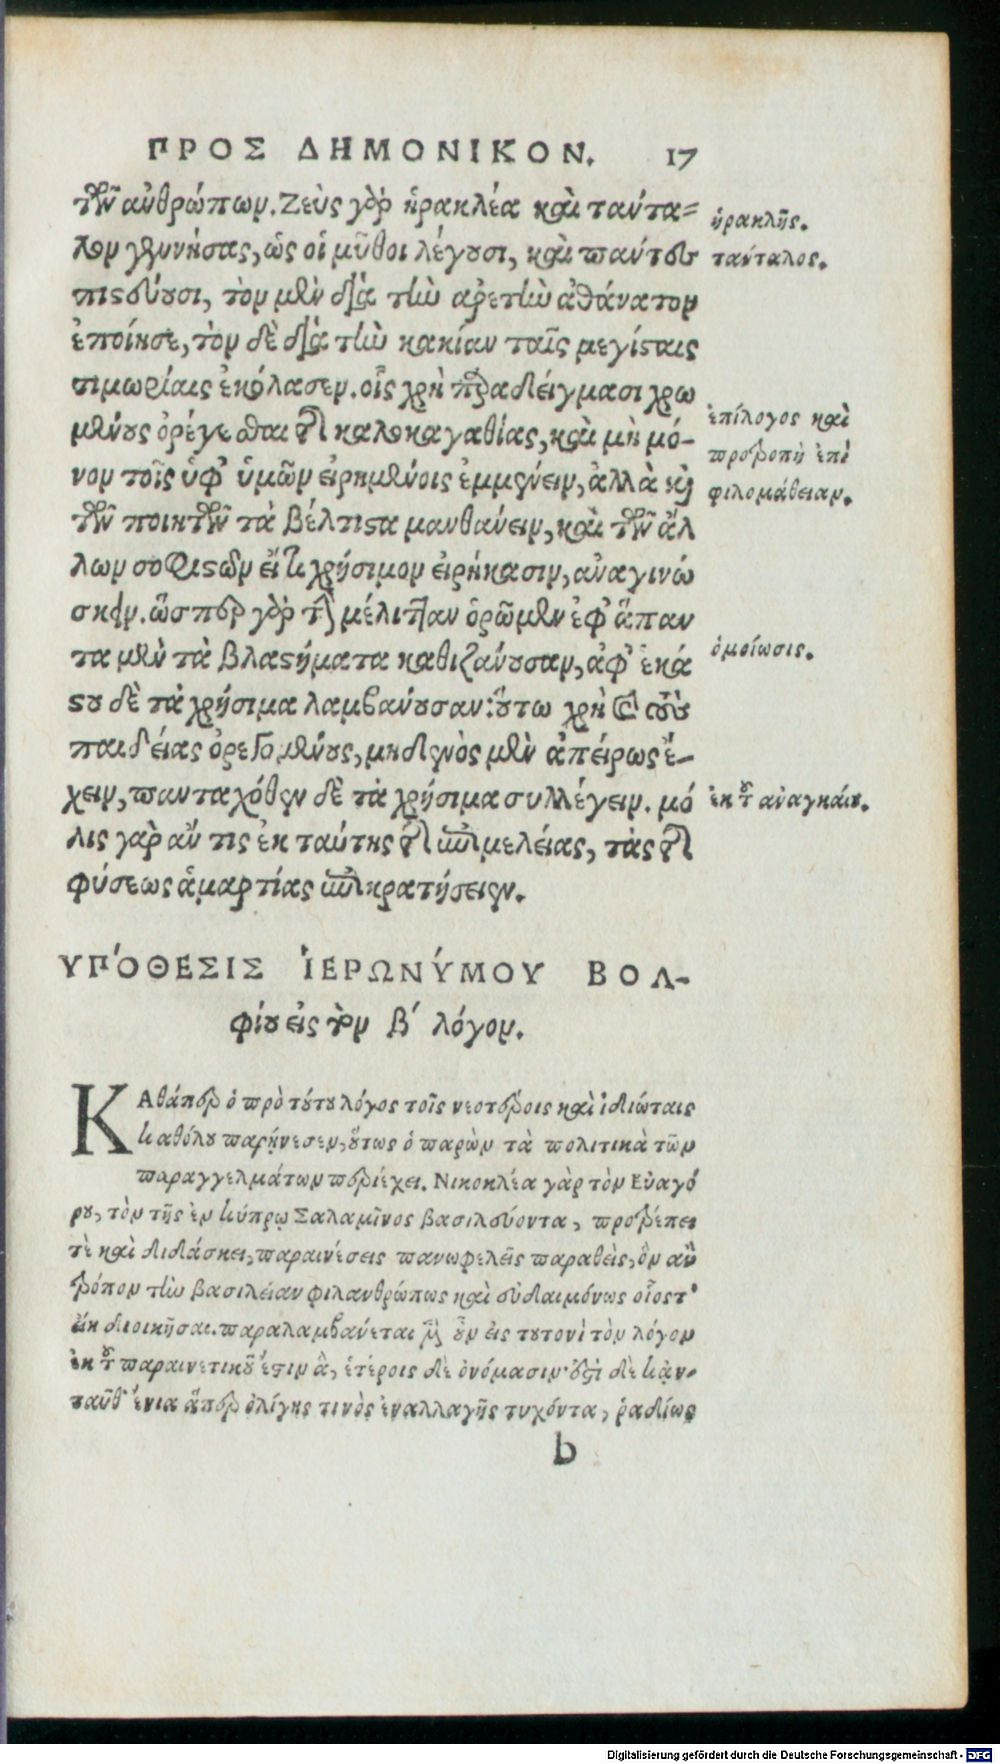 ΠΡΟΣ ΔΗΜΟΝΙΚΟΝ. 17
τῶν ἀνθρώπων. Ζεὺς γὰρ ἡρακλέα καὶ ταύτα=
λον γεννήσας, ὡς οἱ μῦθοι λέγουσι, καὶ πάντες
πιστεύουσι, τὸν μὲν διὰ τὴν ἀρετὴν ἀθάνατον
ἐποίησε, τὸν δὲ διὰ τὴν κακίαν ταῖς μεγίσταις
τιμωρίαις ἐκόλασεν. οἷς χρὴ παραδείγμασι χρω
μένους ὀρέγεσθαι τῆς καλοκαγαθίας, καὶ μὴ μό-
νον τοῖς ὑφ’ ὑμῶν εἰρημένοις ἐμμένειν, ἀλλὰ καὶ
τῶν ποιητῶν τὰ βέλτιστα μανθάνειν, καὶ τῶν ἄλ
λων σοφιστῶν εἴ τι χρήσιμον εἰρήκασιν, ἀναγινώ
σκειν. ὥσπερ γὰρ τὴν μέλιτταν ὁρῶμεν ἐφ’ ἅπαν
τα μὲν τὰ βλαστήματα καθιζάνουσαν, ἀφ’ ἑκά
στου δὲ τὰ χρήσιμα λαμβάνουσαν: οὕτω χρὴ καὶ τοὺς
παιδείας ὀρεγομένους, μηδενὸς μὲν ἀπείρως ἔ-
χειν, πανταχόθεν δὲ τὰ χρήσιμα συλλέγειν. μό
λις γὰρ ἄν τις ἐκ ταύτης τῆς ἐπιμελείας, τὰς τῆς
φύσεως ἁμαρτίας ἐπικρατήσειεν.
ἡρακλῆς.
τάνταλος.
ἐπίλογος καὶ
προτροπὴ ἐπὶ
φιλομάθειαν.
ὁμοίωσις.
ἐκ τοῦ ἀναγκαίου.
ΥΠΌΘΕΣΙΣ ἹΕΡΩΝΎΜΟΥ ΒΟΛ-
φίου εἰς τὸν β’ λόγον.
ΚΑθάπερ ὁ πρὸ τούτου λόγος τοῖς νεοτέροις καὶ ἰδιώταις
καθόλου παρῄνεσεν, οὕτως ὁ παρὼν τὰ πολιτικὰ τῶν
παραγγελμάτων περιέχει. Νικοκλέα γὰρ τὸν Εὐαγό
ρου, τὸν τῆς ἐν κύπρῳ Σαλαμῖνος βασιλεύοντα, προτρέπει
τὲ καὶ διδάσκει, παραινέσεις πανωφελεῖς παραθεὶς, ὃν ἂν
τρόπον τὴν βασιλείαν φιλανθρώπως καὶ εὐδαιμόνως οἷος τ’
εἴη διοικῆσαι. παραλαμβάνεται μὲν οὖν εἰς τουτονὶ τὸν λόγον
ἐκ τοῦ παραινετικοῦ ἔστιν ἃ, ἑτέροις δὲ ὀνόμασιν· ἔστι δὲ κἀν-
ταῦθ’ ἔνια ἅπερ ὀλίγης τινὸς ἐναλλαγῆς τυχόντα, ῥαδίως
b
Digitalisierung gefördert durch die Deutsche Forschungsgemeinschaft - DFG